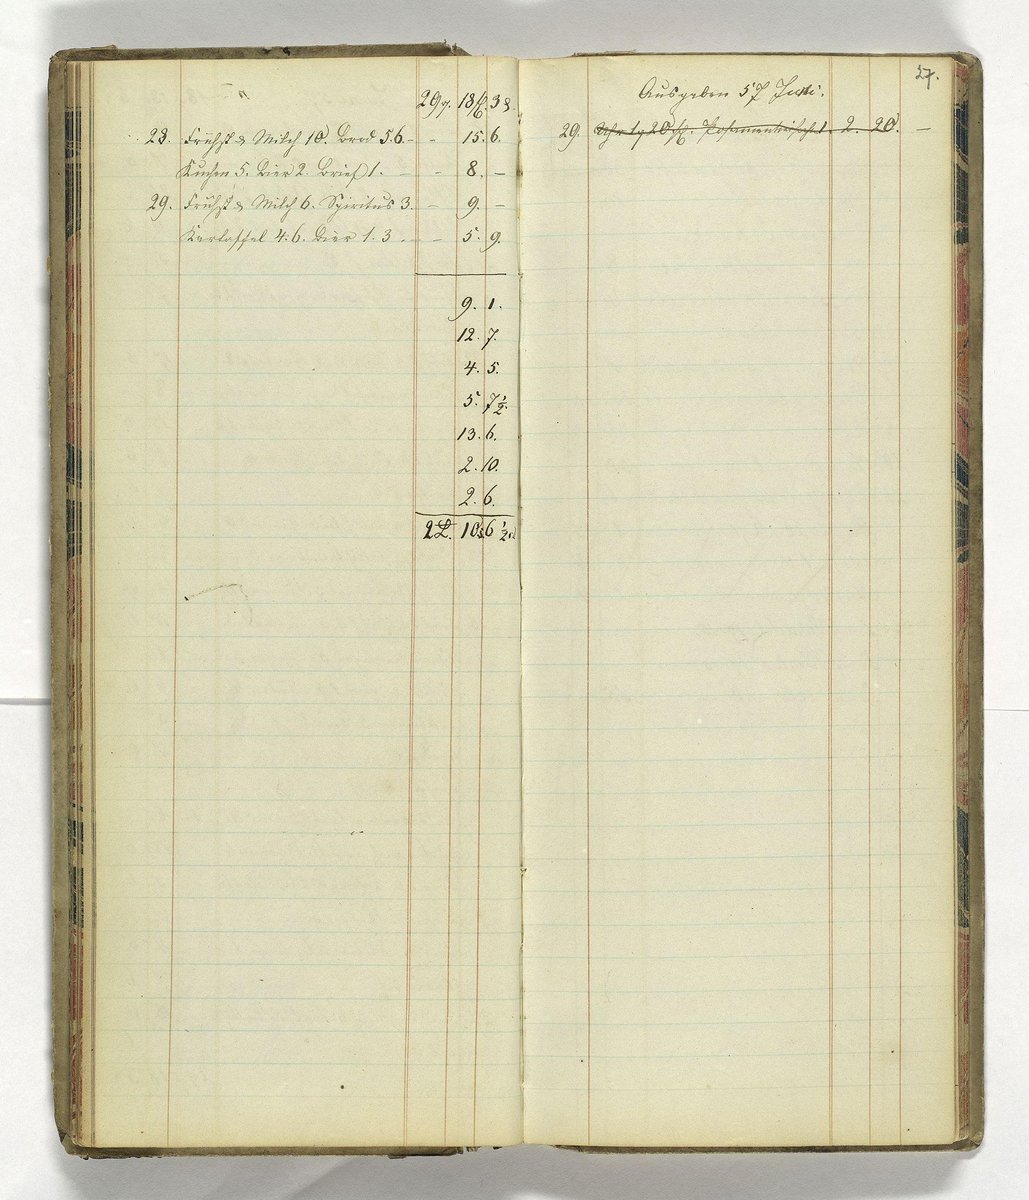 29 18 38.
28. Frühst & Milch 10. Brod 56 - - 15. 6.
Kuchen 5. Bier 2. Brief 1. - - 8. -
29. Frühst & Milch 6. Spiritus 3. - 9. -
Kartoffel 4.6. Bier 1.3. - - 5. 9.
9. 1.
12. 7.
4. 5.
5. 7½.
13. 6.
2. 10.
2. 6.
2 10 6½
27.
Ausgaben 57 Juni.
29. Uhr 20 1. 2. 20. -